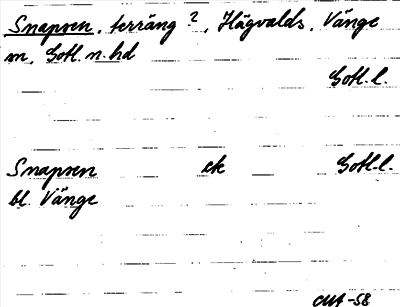 Snapsen, terräng?, Hägvalds, Vänge
sn, Gotl. n. hd
Gotl. l.
Snapsen ek Gotl. l.
bl. Vänge
-58